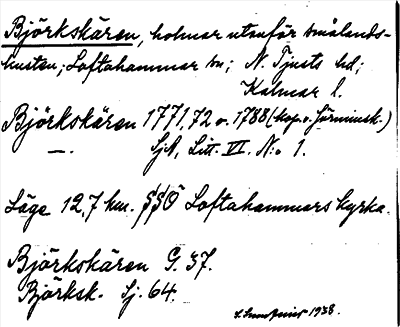 Björkskären, holmar utanför smålands-
kusten; Loftahammar sn; N. Tjusts hd;
Kalmar l.
Björkskären 1771,72 o. 1788 (kop. o. Järnmsk.)
—„— SjA, Litt. VI. No 1.
Läge 12,7 km. SSÖ Loftahammars kyrka.
Björkskären G. 37.
Björksk. Sj. 64.
1938.